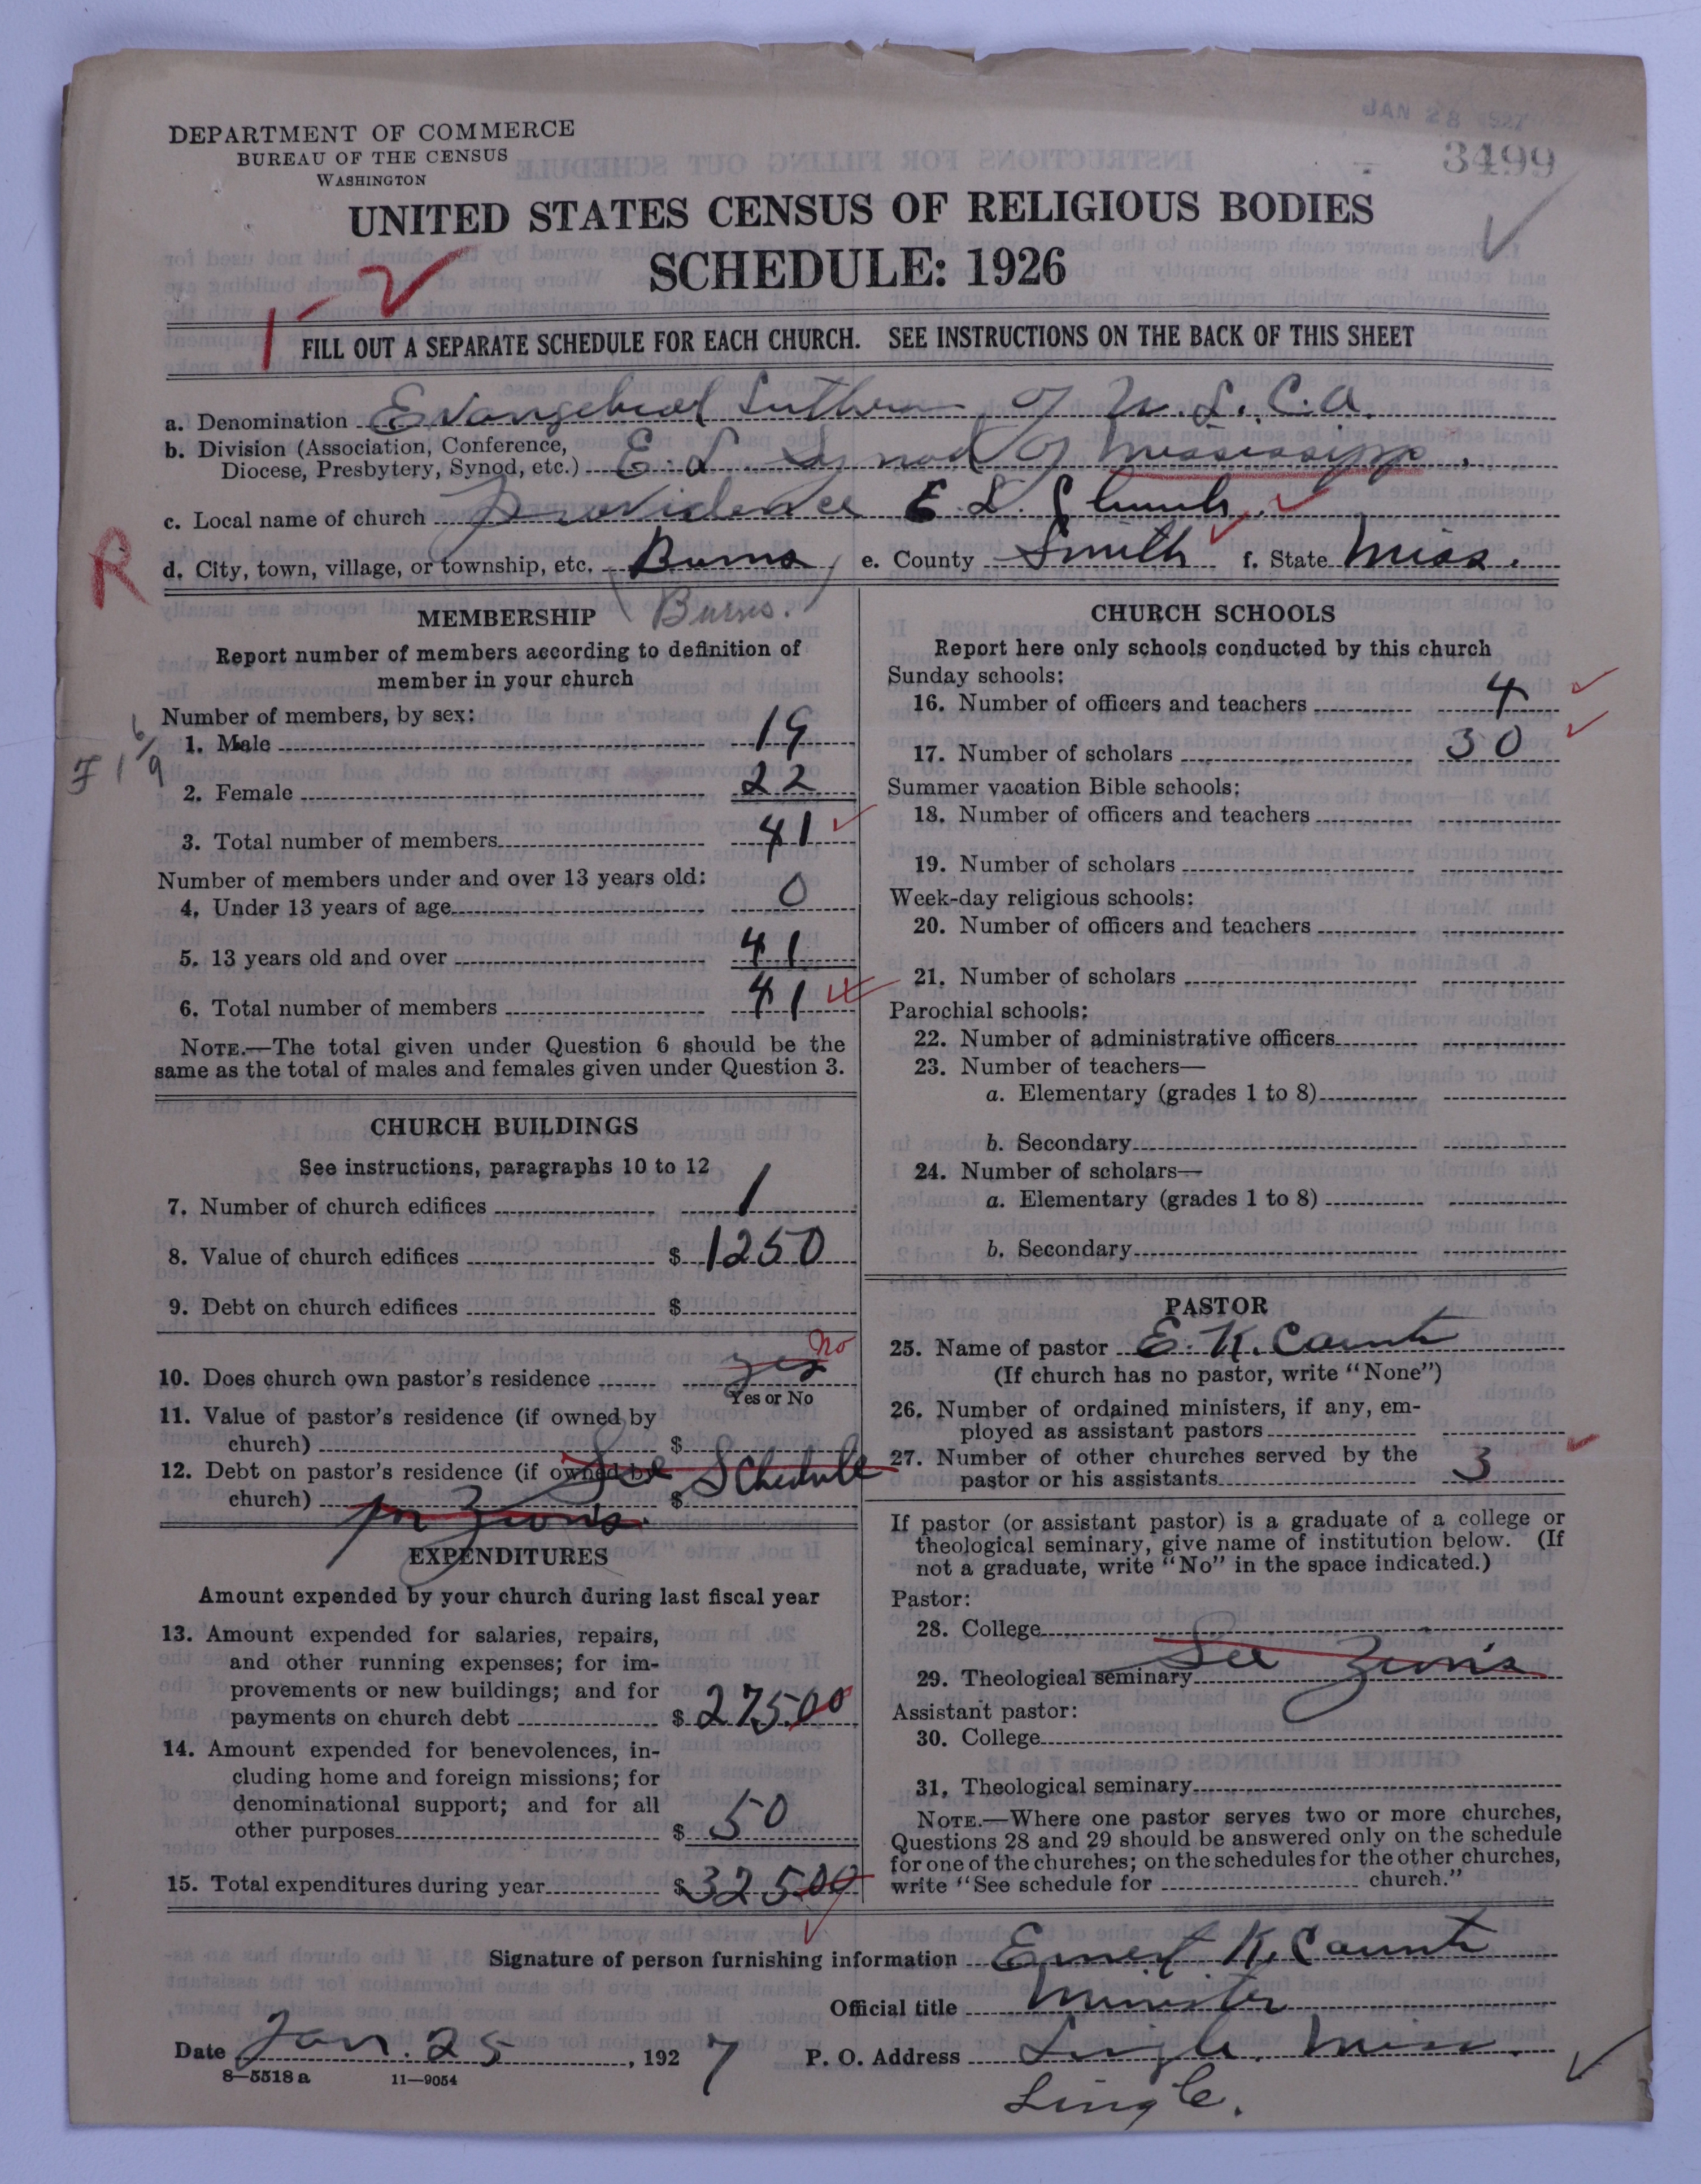 JAN 28 1927
3499
DEPARTMENT OF COMMERCE
BUREAU OF THE CENSUS
WASHINGTON
UNITED STATES CENSUS OF RELIGIOUS BODIES
SCHEDULE: 1926
FILL OUT A SEPARATE SCHEDULE FOR EACH CHURCH. SEE INSTRUCTIONS ON THE BACK OF THIS SHEET
a. Denomination Evangelical Lutheran of U.L.C.A.
b. Division (Association, Conference,
Diocese, Presbytery, Synod, etc.) E. L. Synod of Mississippi.
c. Local name of church Providence E. L. Church.
R
d. City, town, village, or township, etc. Burns e. County Smith f. State Miss.
(Burns.)
MEMBERSHIP
Report number of members according to definition of
member in your church
Number of members, by sex:
1. Male 19
2. Female 22
3. Total number of members 41
Number of members under and over 13 years old:
4. Under 13 years of age 0
5. 13 years old and over 41
6. Total number of members 41
NOTE.—The total given under Question 6 should be the
same as the total of males and females given under Question 3.
CHURCH BUILDINGS
See instructions, paragraphs 10 to 12
7. Number of church edifices 1
8. Value of church edifices $ 1250
9. Debt on church edifices $
10. Does church own pastor's residence yes no
Yes or No
11. Value of pastor's residence (if owned by
church) $
12. Debt on pastor's residence (if owned by See Schedule
church) $
Zion's.
EXPENDITURES
Amount expended by your church during last fiscal year
13. Amount expended for salaries, repairs,
and other running expenses; for im-
provements or new buildings; and for
payments on church debt $ 275.00
14. Amount expended for benevolences, in-
cluding home and foreign missions; for
denominational support; and for all
other purposes $ 50
15. Total expenditures during year $ 325.00
CHURCH SCHOOLS
Report here only schools conducted by this church
Sunday schools:
16. Number of officers and teachers 4
17. Number of scholars 30
Summer vacation Bible schools:
18. Number of officers and teachers
19. Number of scholars
Week-day religious schools:
20. Number of officers and teachers
21. Number of scholars
Parochial schools:
22. Number of administrative officers
23. Number of teachers—
a. Elementary (grades 1 to 8)
b. Secondary
24. Number of scholars—
a. Elementary (grades 1 to 8)
b. Secondary
PASTOR
25. Name of pastor E. K. Counts
(If church has no pastor, write "None")
26. Number of ordained ministers, if any, em-
ployed as assistant pastors
27. Number of other churches served by the
pastor or his assistants 3
If pastor (or assistant pastor) is a graduate of a college or
theological seminary, give name of institution below. (If
not a graduate, write "No" in the space indicated.)
Pastor:
28. College
29. Theological seminary See Zion's
Assistant pastor:
30. College
31. Theological seminary
NOTE.—Where one pastor serves two or more churches,
Questions 28 and 29 should be answered only on the schedule
for one of the churches; on the schedules for the other churches,
write "See schedule for church."
Signature of person furnishing information Ernest K. Counts
Official title Minister
Date Jan. 25, 1927 P. O. Address Lingle, Miss.
8—5518a 11—9054
Lingle.